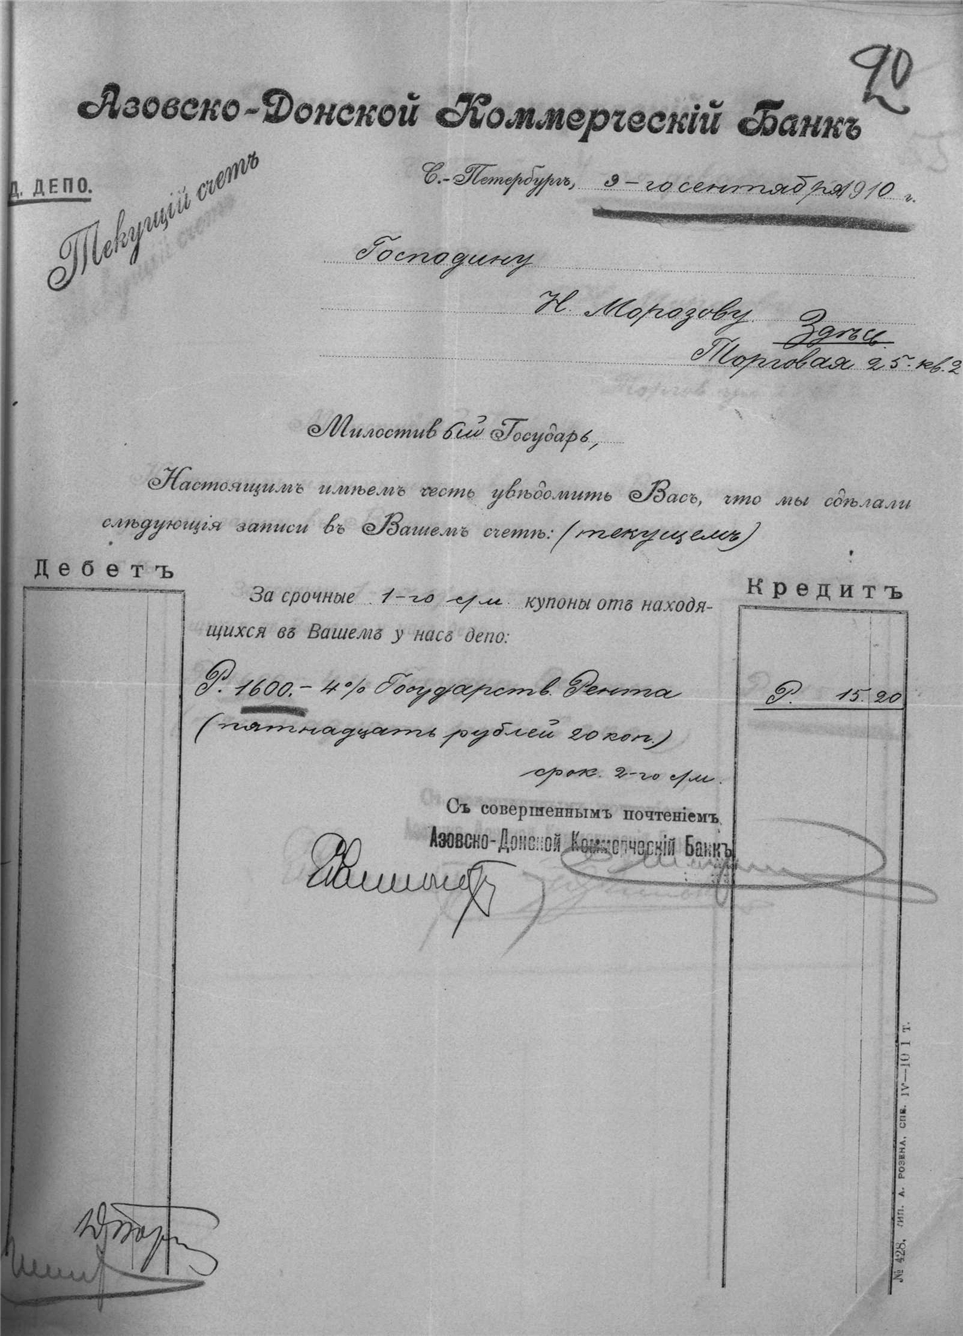 20
Азовско-Донской Коммерческій Банкъ
Д. ДЕПО.
Текущій счетъ
С.-Петербургъ, 9-го сентября 1910 г.
Господину
Н. Морозову
Здѣсь
Торговая 25 кв. 2
Милостивый Государь,
Настоящимъ имѣемъ честь увѣдомить Васъ, что мы сдѣлали
слѣдующія записи въ Вашемъ счетѣ: (текущемъ)
Дебетъ
Кредитъ
За срочные 1-го с/м. купоны отъ находя-
щихся въ Вашемъ у насъ депо:
Р. 1600.- 4% Государств. Рента
Р. 15.20
(пятнадцать рублей 20 коп.)
срок. 2-го с/м.
Съ совершеннымъ почтеніемъ
Азовско-Донской Коммерческій Банкъ
№ 428. Тип. А. Розена, Спб. IV—10 1 т.